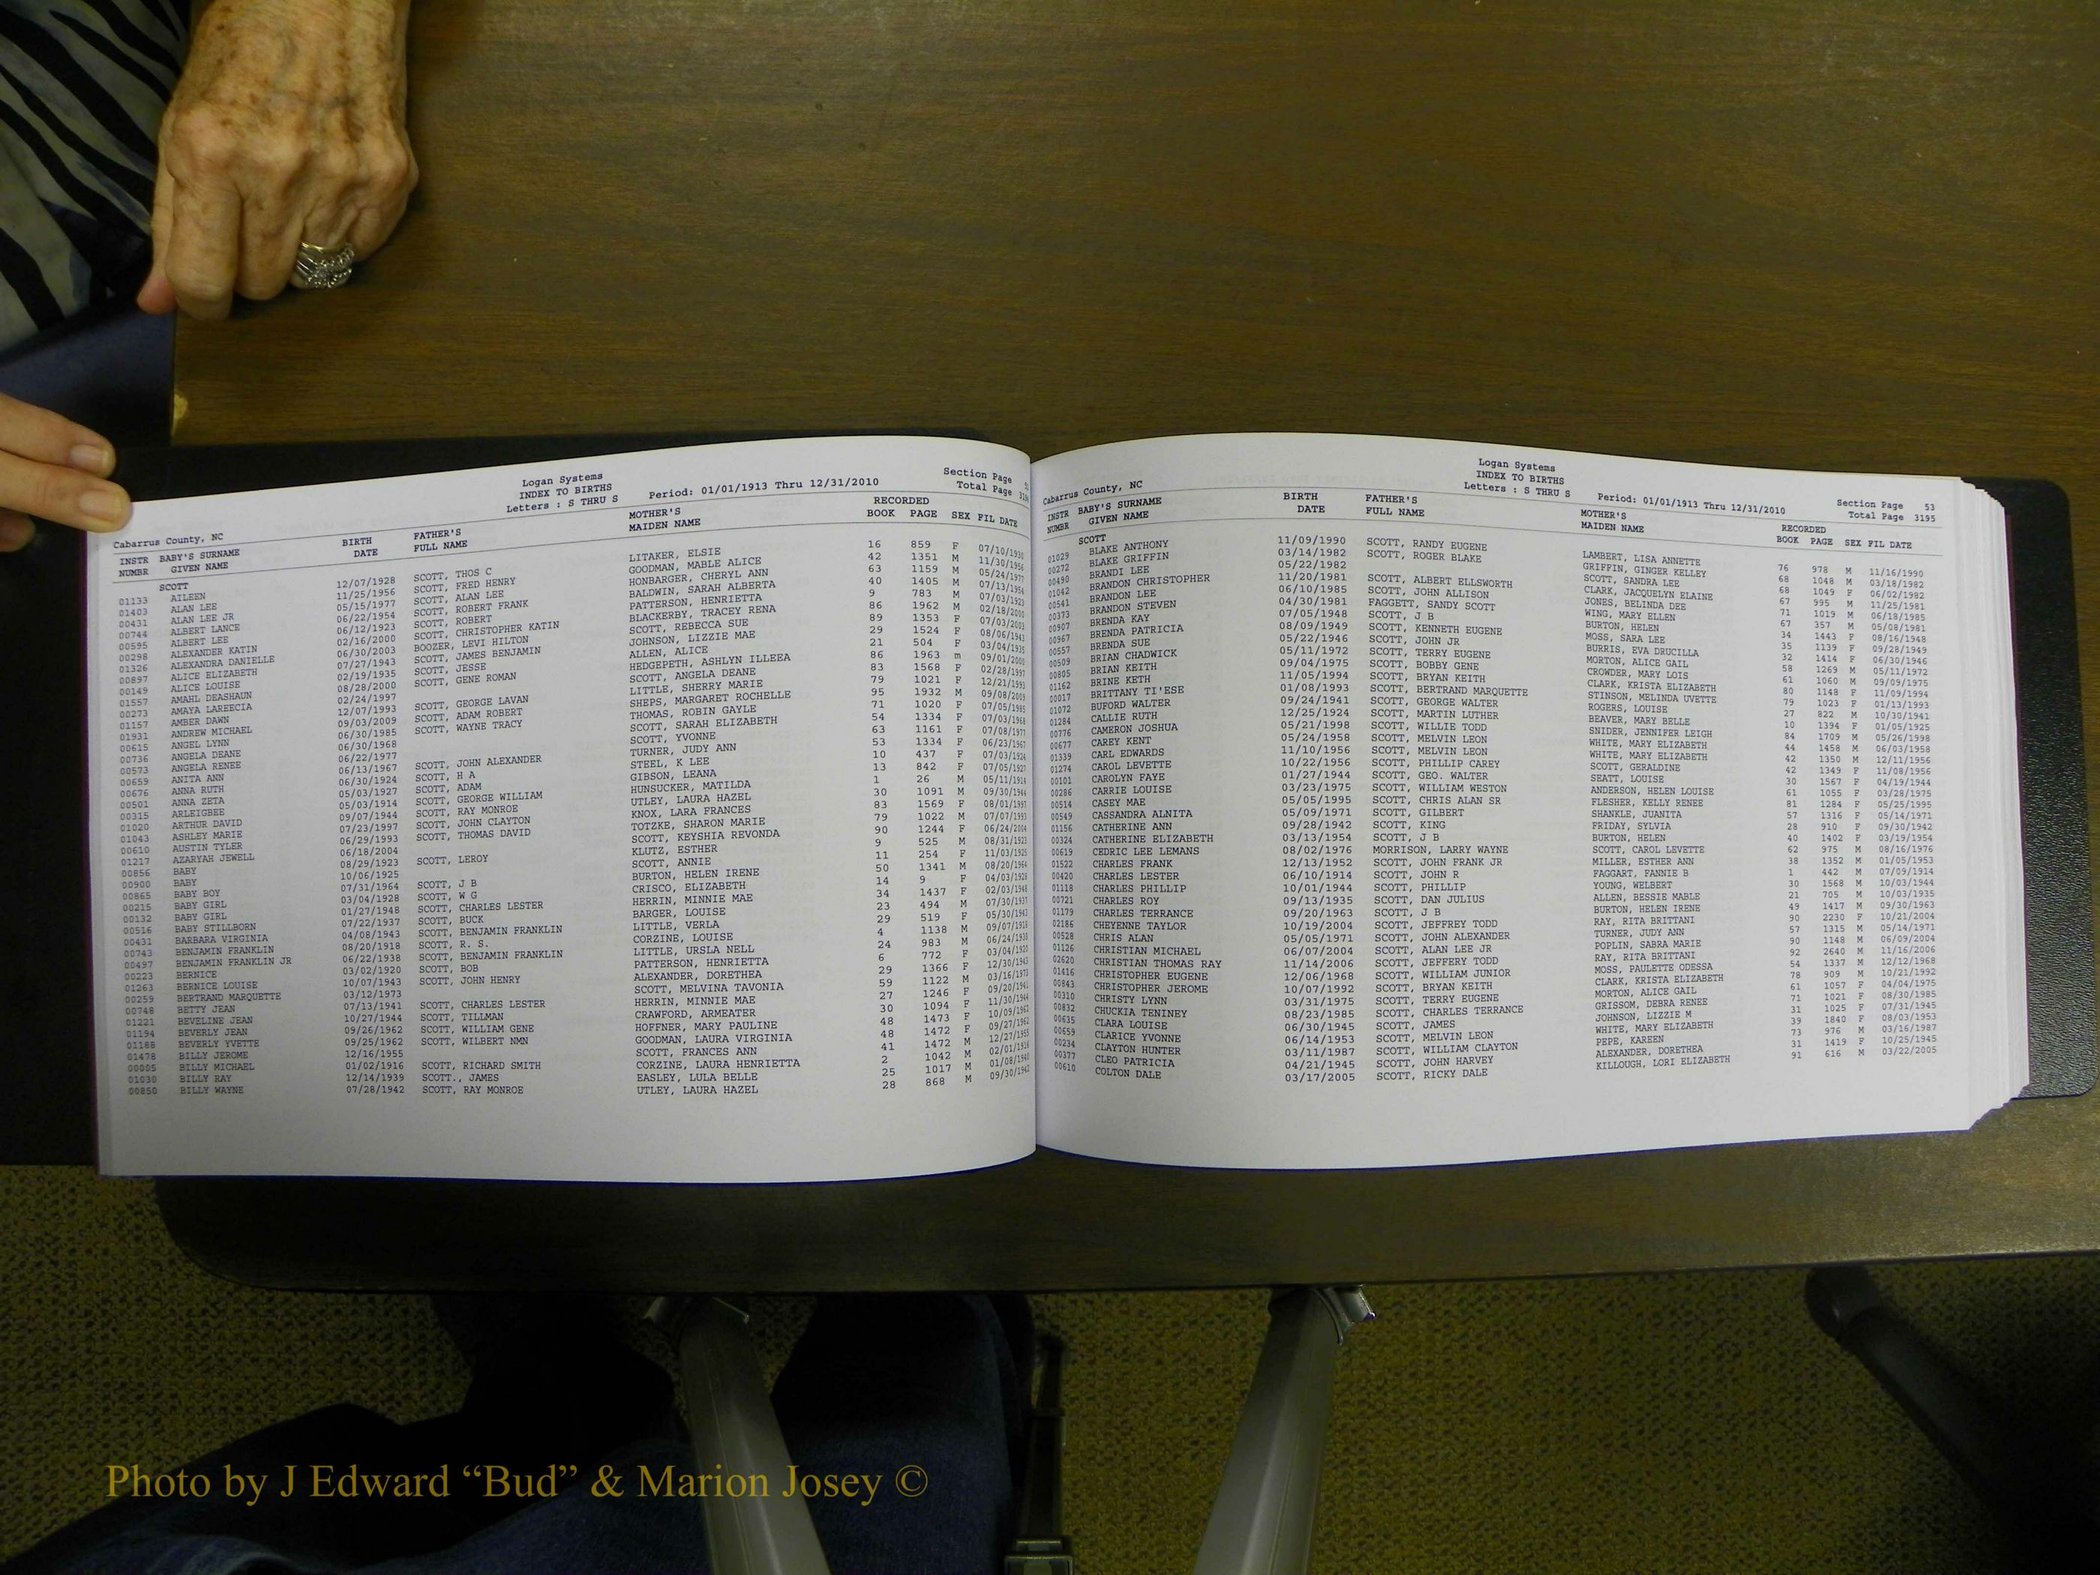 Logan Systems
INDEX TO BIRTHS
Letters : S THRU S
Cabarrus County, NC
Period: 01/01/1913 Thru 12/31/2010
Section Page
Total Page
INSTR BABY'S SURNAME BIRTH FATHER'S MOTHER'S RECORDED
NUMBR GIVEN NAME DATE FULL NAME MAIDEN NAME BOOK PAGE SEX FIL DATE
SCOTT
01133 AILEEN 12/07/1928 SCOTT, THOS C LITAKER, ELSIE 16 859 F 07/10/1930
01403 ALAN LEE 11/25/1956 SCOTT, FRED HENRY GOODMAN, MABLE ALICE 42 1351 M 11/30/1956
00431 ALAN LEE JR 05/15/1977 SCOTT, ALAN LEE HONBARGER, CHERYL ANN 63 1159 M 05/24/1977
00744 ALBERT LANCE 06/22/1954 SCOTT, ROBERT FRANK BALDWIN, SARAH ALBERTA 40 1405 M 07/13/1954
00595 ALBERT LEE 06/12/1923 SCOTT, ROBERT PATTERSON, HENRIETTA 9 783 M 07/03/1923
00298 ALEXANDER KATIN 02/16/2000 SCOTT, CHRISTOPHER KATIN BLACKERBY, TRACEY RENA 86 1962 M 02/18/2000
01326 ALEXANDRA DANIELLE 06/30/2003 BOOZER, LEVI HILTON SCOTT, REBECCA SUE 89 1353 F 07/03/2003
00897 ALICE ELIZABETH 07/27/1943 SCOTT, JAMES BENJAMIN JOHNSON, LIZZIE MAE 29 1524 F 08/06/1943
00149 ALICE LOUISE 02/19/1935 SCOTT, JESSE ALLEN, ALICE 21 504 F 03/04/1935
01557 AMAHL DEASHAUN 08/28/2000 SCOTT, GENE ROMAN HEDGEPETH, ASHLYN ILLEEA 86 1963 m 09/01/2000
00273 AMAYA LAREECIA 02/24/1997 SCOTT, ANGELA DEANE 83 1568 F 02/28/1997
01157 AMBER DAWN 12/07/1993 SCOTT, GEORGE LAVAN LITTLE, SHERRY MARIE 79 1021 F 12/21/1993
01931 ANDREW MICHAEL 09/03/2009 SCOTT, ADAM ROBERT SHEPS, MARGARET ROCHELLE 95 1932 M 09/08/2009
00615 ANGEL LYNN 06/30/1985 SCOTT, WAYNE TRACY THOMAS, ROBIN GAYLE 71 1020 F 07/05/1985
00736 ANGELA DEANE 06/30/1968 SCOTT, SARAH ELIZABETH 54 1334 F 07/03/1968
00573 ANGELA RENEE 06/22/1977 SCOTT, YVONNE 63 1161 F 07/08/1977
00659 ANITA ANN 06/13/1967 SCOTT, JOHN ALEXANDER TURNER, JUDY ANN 53 1334 F 06/23/1967
00676 ANNA RUTH 06/30/1924 SCOTT, H A STEEL, K LEE 10 437 F 07/03/1924
00501 ANNA ZETA 05/03/1927 SCOTT, ADAM GIBSON, LEANA 13 842 F 07/05/1927
00315 ARLEIGBEE 05/03/1914 SCOTT, GEORGE WILLIAM HUNSUCKER, MATILDA 1 26 M 05/11/1914
01020 ARTHUR DAVID 09/07/1944 SCOTT, RAY MONROE UTLEY, LAURA HAZEL 30 1091 M 09/30/1944
01043 ASHLEY MARIE 07/23/1997 SCOTT, JOHN CLAYTON KNOX, LARA FRANCES 83 1569 F 08/01/1997
00610 AUSTIN TYLER 06/29/1993 SCOTT, THOMAS DAVID TOTZKE, SHARON MARIE 79 1022 M 07/07/1993
01217 AZARYAH JEWELL 06/18/2004 SCOTT, KEYSHIA REVONDA 90 1244 F 06/24/2004
00856 BABY 08/29/1923 SCOTT, LEROY KLUTZ, ESTHER 9 525 M 08/31/1923
00900 BABY 10/06/1925 SCOTT, ANNIE 11 254 F 11/03/1925
00865 BABY BOY 07/31/1964 SCOTT, J B BURTON, HELEN IRENE 50 1341 M 08/20/1964
00215 BABY GIRL 03/04/1928 SCOTT, W G CRISCO, ELIZABETH 14 9 F 04/03/1928
00132 BABY GIRL 01/27/1948 SCOTT, CHARLES LESTER HERRIN, MINNIE MAE 34 1437 F 02/03/1948
00516 BABY STILLBORN 07/22/1937 SCOTT, BUCK BARGER, LOUISE 23 494 M 07/30/1937
00431 BARBARA VIRGINIA 04/08/1943 SCOTT, BENJAMIN FRANKLIN LITTLE, VERLA 29 519 F 05/30/1943
00743 BENJAMIN FRANKLIN 08/20/1918 SCOTT, R. S. CORZINE, LOUISE 4 1138 M 09/07/1918
00497 BENJAMIN FRANKLIN JR 06/22/1938 SCOTT, BENJAMIN FRANKLIN LITTLE, URSLA NELL 24 983 M 06/24/1938
00223 BERNICE 03/02/1920 SCOTT, BOB PATTERSON, HENRIETTA 6 772 F 03/04/1920
01263 BERNICE LOUISE 10/07/1943 SCOTT, JOHN HENRY ALEXANDER, DORETHEA 29 1366 F 12/30/1943
00259 BERTRAND MARQUETTE 03/12/1973 SCOTT, MELVINA TAVONIA 59 1122 M 03/16/1973
00748 BETTY JEAN 07/13/1941 SCOTT, CHARLES LESTER HERRIN, MINNIE MAE 27 1246 F 09/20/1941
01221 BEVELINE JEAN 10/27/1944 SCOTT, TILLMAN CRAWFORD, ARMEATER 30 1094 F 11/30/1944
01194 BEVERLY JEAN 09/26/1962 SCOTT, WILLIAM GENE HOFFNER, MARY PAULINE 48 1473 F 10/09/1962
01188 BEVERLY YVETTE 09/25/1962 SCOTT, WILBERT NMN GOODMAN, LAURA VIRGINIA 48 1472 F 09/27/1962
01478 BILLY JEROME 12/16/1955 SCOTT, FRANCES ANN 41 1472 M 12/27/1955
00005 BILLY MICHAEL 01/02/1916 SCOTT, RICHARD SMITH CORZINE, LAURA HENRIETTA 2 1042 M 02/01/1916
01030 BILLY RAY 12/14/1939 SCOTT., JAMES EASLEY, LULA BELLE 25 1017 M 01/08/1940
00850 BILLY WAYNE 07/28/1942 SCOTT, RAY MONROE UTLEY, LAURA HAZEL 28 868 M 09/30/1942
Logan Systems
INDEX TO BIRTHS
Letters : S THRU S
Cabarrus County, NC
Period: 01/01/1913 Thru 12/31/2010
Section Page 53
Total Page 3195
INSTR BABY'S SURNAME BIRTH FATHER'S MOTHER'S RECORDED
NUMBR GIVEN NAME DATE FULL NAME MAIDEN NAME BOOK PAGE SEX FIL DATE
SCOTT
01029 BLAKE ANTHONY 11/09/1990 SCOTT, RANDY EUGENE LAMBERT, LISA ANNETTE 76 978 M 11/16/1990
00272 BLAKE GRIFFIN 03/14/1982 SCOTT, ROGER BLAKE GRIFFIN, GINGER KELLEY 68 1048 M 03/18/1982
00490 BRANDI LEE 05/22/1982 SCOTT, SANDRA LEE 68 1049 F 06/02/1982
01042 BRANDON CHRISTOPHER 11/20/1981 SCOTT, ALBERT ELLSWORTH CLARK, JACQUELYN ELAINE 67 995 M 11/25/1981
00541 BRANDON LEE 06/10/1985 SCOTT, JOHN ALLISON JONES, BELINDA DEE 71 1019 M 06/18/1985
00373 BRANDON STEVEN 04/30/1981 FAGGETT, SANDY SCOTT WING, MARY ELLEN 67 357 M 05/08/1981
00907 BRENDA KAY 07/05/1948 SCOTT, J B BURTON, HELEN 34 1443 F 08/16/1948
00967 BRENDA PATRICIA 08/09/1949 SCOTT, KENNETH EUGENE MOSS, SARA LEE 35 1139 F 09/28/1949
00557 BRENDA SUE 05/22/1946 SCOTT, JOHN JR BURRIS, EVA DRUCILLA 32 1414 F 06/30/1946
00509 BRIAN CHADWICK 05/11/1972 SCOTT, TERRY EUGENE MORTON, ALICE GAIL 58 1269 M 05/11/1972
00805 BRIAN KEITH 09/04/1975 SCOTT, BOBBY GENE CROWDER, MARY LOIS 61 1060 M 09/09/1975
01162 BRINE KETH 11/05/1994 SCOTT, BRYAN KEITH CLARK, KRISTA ELIZABETH 80 1148 F 11/09/1994
00017 BRITTANY TI'ESE 01/08/1993 SCOTT, BERTRAND MARQUETTE STINSON, MELINDA UVETTE 79 1023 F 01/13/1993
01072 BUFORD WALTER 09/24/1941 SCOTT, GEORGE WALTER ROGERS, LOUISE 27 822 M 10/30/1941
01284 CALLIE RUTH 12/25/1924 SCOTT, MARTIN LUTHER BEAVER, MARY BELLE 10 1394 F 01/05/1925
00776 CAMERON JOSHUA 05/21/1998 SCOTT, WILLIE TODD SNIDER, JENNIFER LEIGH 84 1709 M 05/26/1998
00677 CAREY KENT 05/24/1958 SCOTT, MELVIN LEON WHITE, MARY ELIZABETH 44 1458 M 06/03/1958
01339 CARL EDWARDS 11/10/1956 SCOTT, MELVIN LEON WHITE, MARY ELIZABETH 42 1350 M 12/11/1956
01274 CAROL LEVETTE 10/22/1956 SCOTT, PHILLIP CAREY SCOTT, GERALDINE 42 1349 F 11/08/1956
00101 CAROLYN FAYE 01/27/1944 SCOTT, GEO. WALTER SEATT, LOUISE 30 1567 F 04/19/1944
00286 CARRIE LOUISE 03/23/1975 SCOTT, WILLIAM WESTON ANDERSON, HELEN LOUISE 61 1055 F 03/28/1975
00514 CASEY MAE 05/05/1995 SCOTT, CHRIS ALAN SR FLESHER, KELLY RENEE 81 1284 F 05/25/1995
00549 CASSANDRA ALNITA 05/09/1971 SCOTT, GILBERT SHANKLE, JUANITA 57 1316 F 05/14/1971
01156 CATHERINE ANN 09/28/1942 SCOTT, KING FRIDAY, SYLVIA 28 910 F 09/30/1942
00324 CATHERINE ELIZABETH 03/13/1954 SCOTT, J B BURTON, HELEN 40 1402 F 03/19/1954
00619 CEDRIC LEE LEMANS 08/02/1976 MORRISON, LARRY WAYNE SCOTT, CAROL LEVETTE 62 975 M 08/16/1976
01522 CHARLES FRANK 12/13/1952 SCOTT, JOHN FRANK JR MILLER, ESTHER ANN 38 1352 M 01/05/1953
00420 CHARLES LESTER 06/10/1914 SCOTT, JOHN R FAGGART, FANNIE B 1 442 M 07/09/1914
01118 CHARLES PHILLIP 10/01/1944 SCOTT, PHILLIP YOUNG, WELBERT 30 1568 M 10/03/1944
00721 CHARLES ROY 09/13/1935 SCOTT, DAN JULIUS ALLEN, BESSIE MABLE 21 705 M 10/03/1935
01179 CHARLES TERRANCE 09/20/1963 SCOTT, J B BURTON, HELEN IRENE 49 1417 M 09/30/1963
02186 CHEYENNE TAYLOR 10/19/2004 SCOTT, JEFFREY TODD RAY, RITA BRITTANI 90 2230 F 10/21/2004
00528 CHRIS ALAN 05/05/1971 SCOTT, JOHN ALEXANDER TURNER, JUDY ANN 57 1315 M 05/14/1971
01126 CHRISTIAN MICHAEL 06/07/2004 SCOTT, ALAN LEE JR POPLIN, SABRA MARIE 90 1148 M 06/09/2004
02620 CHRISTIAN THOMAS RAY 11/14/2006 SCOTT, JEFFERY TODD RAY, RITA BRITTANI 92 2640 M 11/16/2006
01416 CHRISTOPHER EUGENE 12/06/1968 SCOTT, WILLIAM JUNIOR MOSS, PAULETTE ODESSA 54 1337 M 12/12/1968
00843 CHRISTOPHER JEROME 10/07/1992 SCOTT, BRYAN KEITH CLARK, KRISTA ELIZABETH 78 909 M 10/21/1992
00310 CHRISTY LYNN 03/31/1975 SCOTT, TERRY EUGENE MORTON, ALICE GAIL 61 1057 F 04/04/1975
00832 CHUCKIA TENINEY 08/23/1985 SCOTT, CHARLES TERRANCE GRISSOM, DEBRA RENEE 71 1021 F 08/30/1985
00635 CLARA LOUISE 06/30/1945 SCOTT, JAMES JOHNSON, LIZZIE M 31 1025 F 07/31/1945
00659 CLARICE YVONNE 06/14/1953 SCOTT, MELVIN LEON WHITE, MARY ELIZABETH 39 1840 F 08/03/1953
00234 CLAYTON HUNTER 03/11/1987 SCOTT, WILLIAM CLAYTON PEPE, KAREEN 73 976 M 03/16/1987
00377 CLEO PATRICIA 04/21/1945 SCOTT, JOHN HARVEY ALEXANDER, DORETHEA 31 1419 F 10/25/1945
00610 COLTON DALE 03/17/2005 SCOTT, RICKY DALE KILLOUGH, LORI ELIZABETH 91 616 M 03/22/2005
Photo by J Edward “Bud” & Marion Josey ©